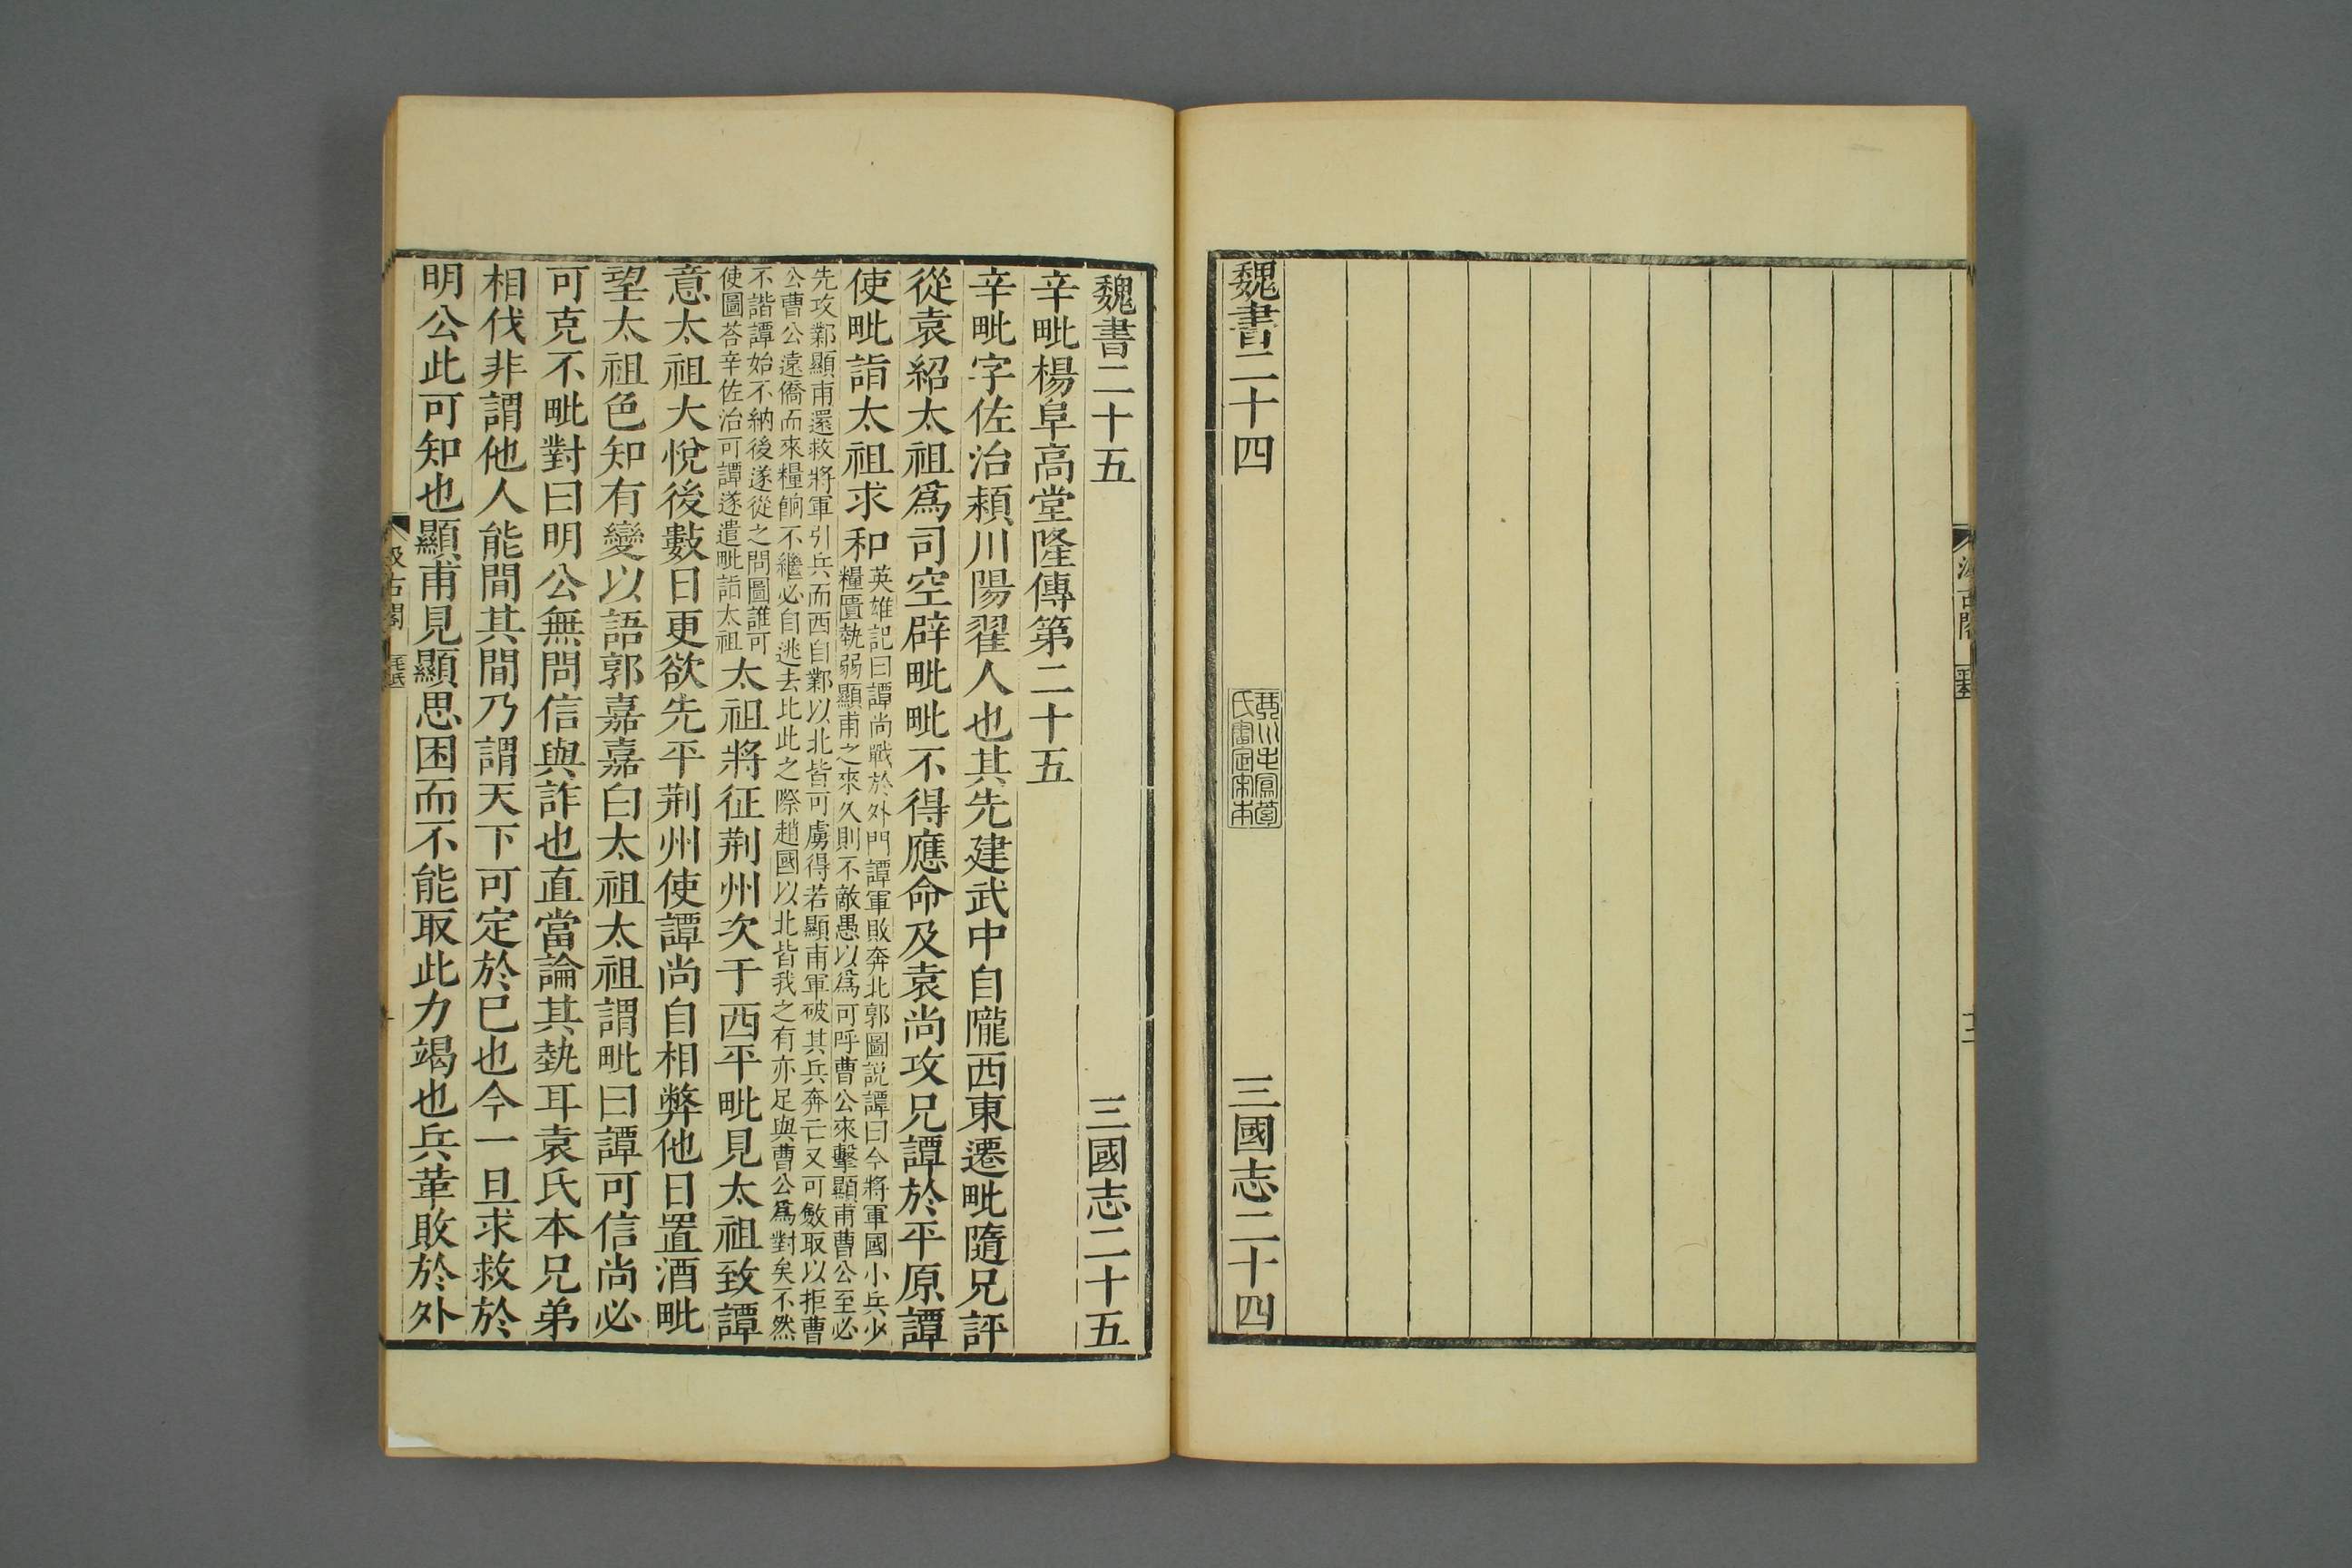 魏書二十四　三國志二十四
琴川毛鳳苞
氏審定宋本
魏書二十五　三國志二十五
辛毗楊阜高堂隆傳第二十五
辛毗字佐治潁川陽翟人也其先建武中自隴西東遷毗隨兄評
從袁紹太祖爲司空辟毗毗不得應命及袁尚攻兄譚於平原譚
使毗詣太祖求和
英雄記曰譚尚戰於外門譚軍敗奔北郭圖說譚曰今將軍國小兵少
糧匱埶弱顯甫之來久則不敵愚以爲可呼曹公來擊顯甫曹公至必
先攻鄴顯甫還救將軍引兵而西自鄴以北皆可虜得若顯甫軍破其兵奔亡又可斂取以拒曹
公曹公遠僑而來糧餉不繼必自逃去比此之際趙國以北皆我之有亦足與曹公爲對矣不然
不諧譚始不納後遂從之問圖誰可
使圖荅辛佐治可譚遂遣毗詣太祖
太祖將征荆州次于西平毗見太祖致譚
意太祖大悅後數日更欲先平荆州使譚尚自相弊他日置酒毗
望太祖色知有變以語郭嘉嘉白太祖太祖謂毗曰譚可信尚必
可克不毗對曰明公無問信與詐也直當論其埶耳袁氏本兄弟
相伐非謂他人能間其間乃謂天下可定於已也今一旦求救於
明公此可知也顯甫見顯思困而不能取此力竭也兵革敗於外
汲古閣